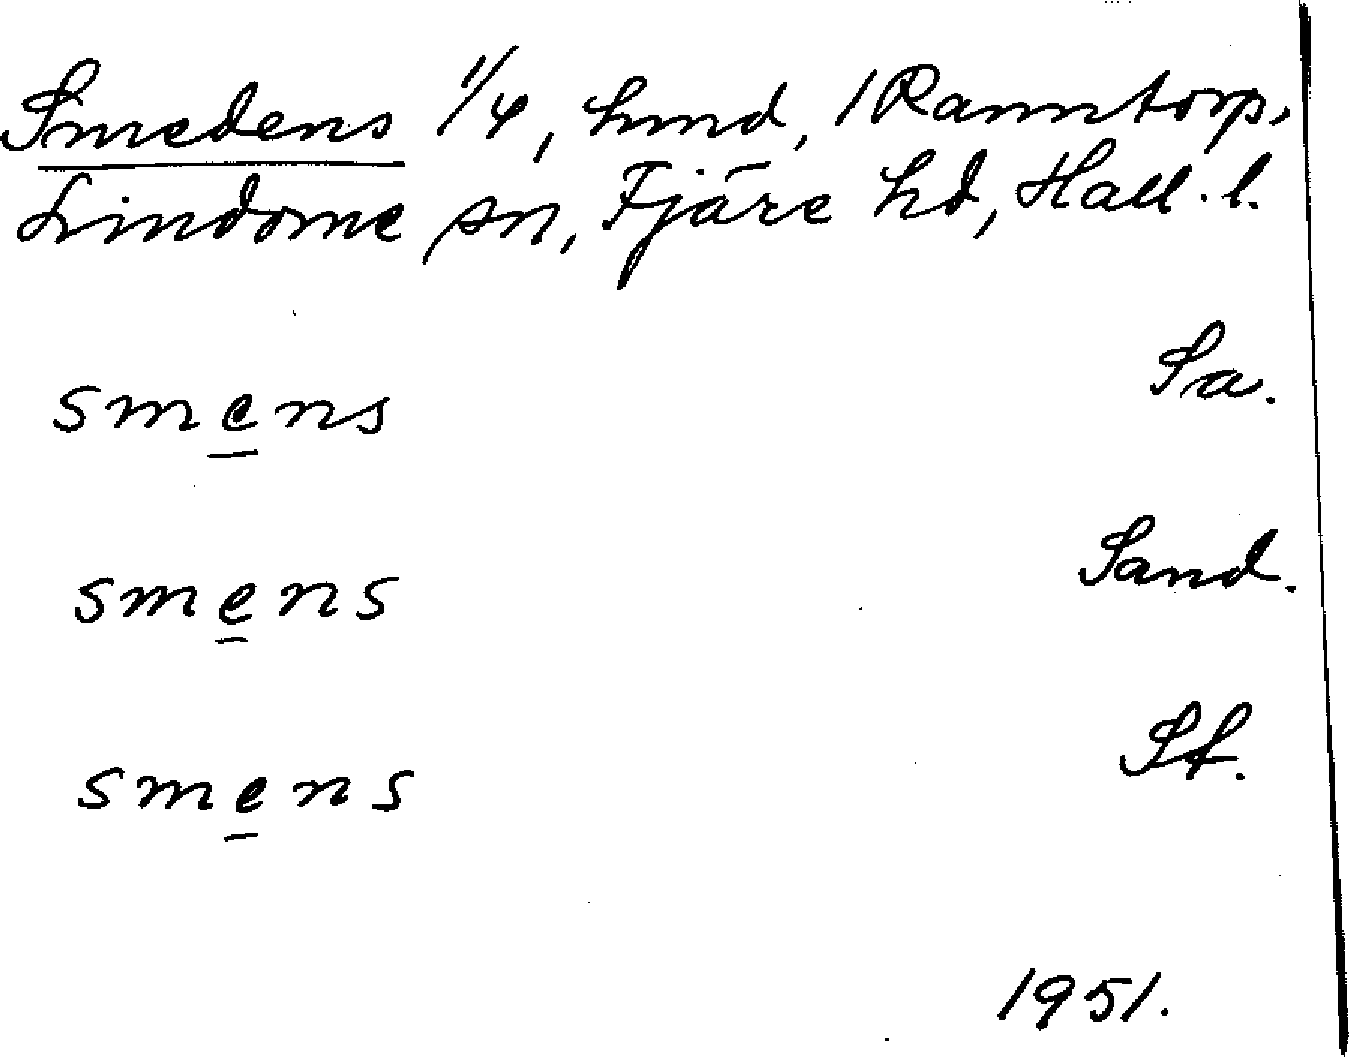 Smedens 1/4, hmd, 1 Ranntorp,
Lindome sn, Fjäre hd, Hall. l.
smens Sa.
smens Sand.
smens St.
1951.